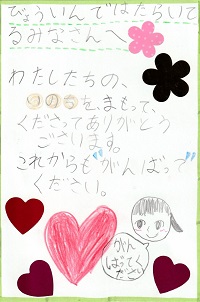 びょういんではたらいて
るみなさんへ
わたしたちの、
いのちを、まもって、
くださってありがとう
ございます。
これからも"がんばって"
ください。
がん
ばってく
ださい